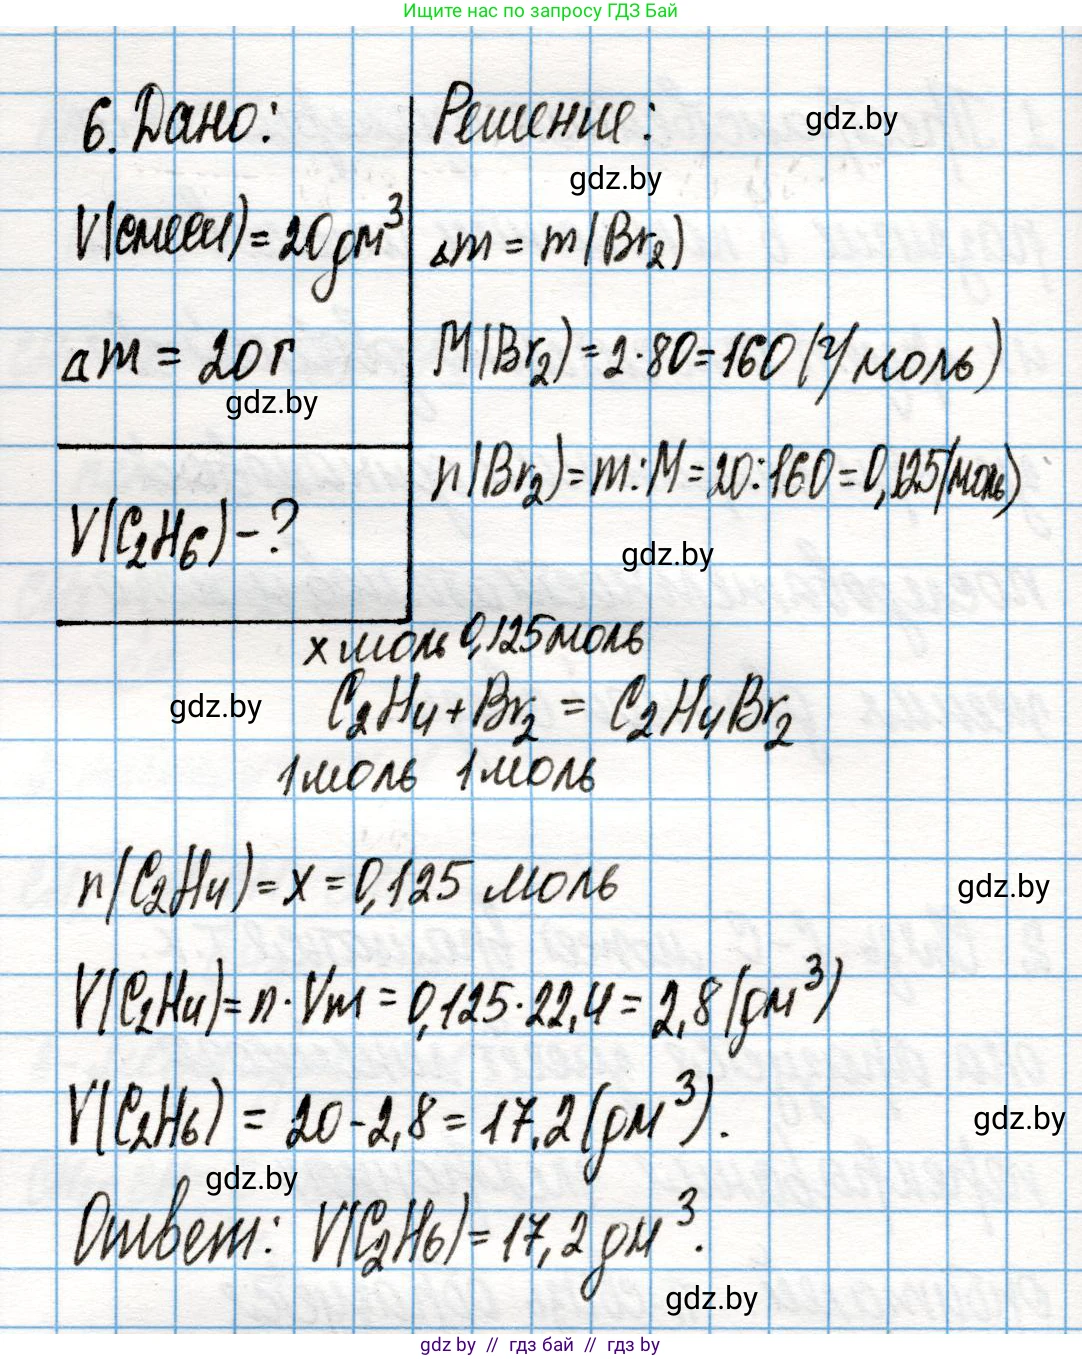 Ищите нас по запросу ГДЗ Бай
6. Дано:
V(смеси) = 20 дм³
Δm = 20 г
gdz.by
V(C₂H₆) - ?
Решение:
gdz.by
gdz.by
Δm = m(Br₂)
M(Br₂) = 2·80 = 160 (г/моль)
n(Br₂) = m:M = 20:160 = 0,125 (моль)
gdz.by
x моль 0,125 моль
gdz.by
C₂H₄ + Br₂ = C₂H₄Br₂
1 моль 1 моль
n(C₂H₄) = x = 0,125 моль
gdz.by
V(C₂H₄) = n · Vm = 0,125·22,4 = 2,8 (дм³)
V(C₂H₆) = 20 - 2,8 = 17,2 (дм³).
gdz.by
gdz.by
Ответ: V(C₂H₆) = 17,2 дм³.
gdz.by
gdz by // гдз бай // гдз by